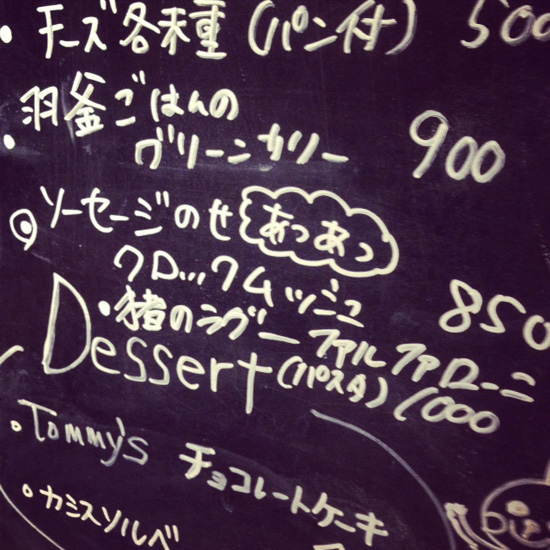 ・チーズ各種(パン付) 500
・羽釜ごはんの
グリーンカリー 900
◎ソーセージのせ あつあつ
クロ…クムッシュ 850
・猪のラグー ファルファローニ
(パスタ) 1000
Dessert
・Tommy's チョコレートケーキ
・カシスソルベ